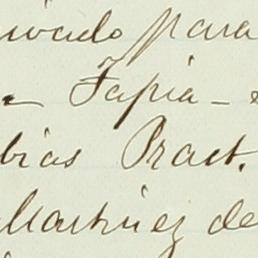 para
Tapia -
bias Pract.
Martinez de